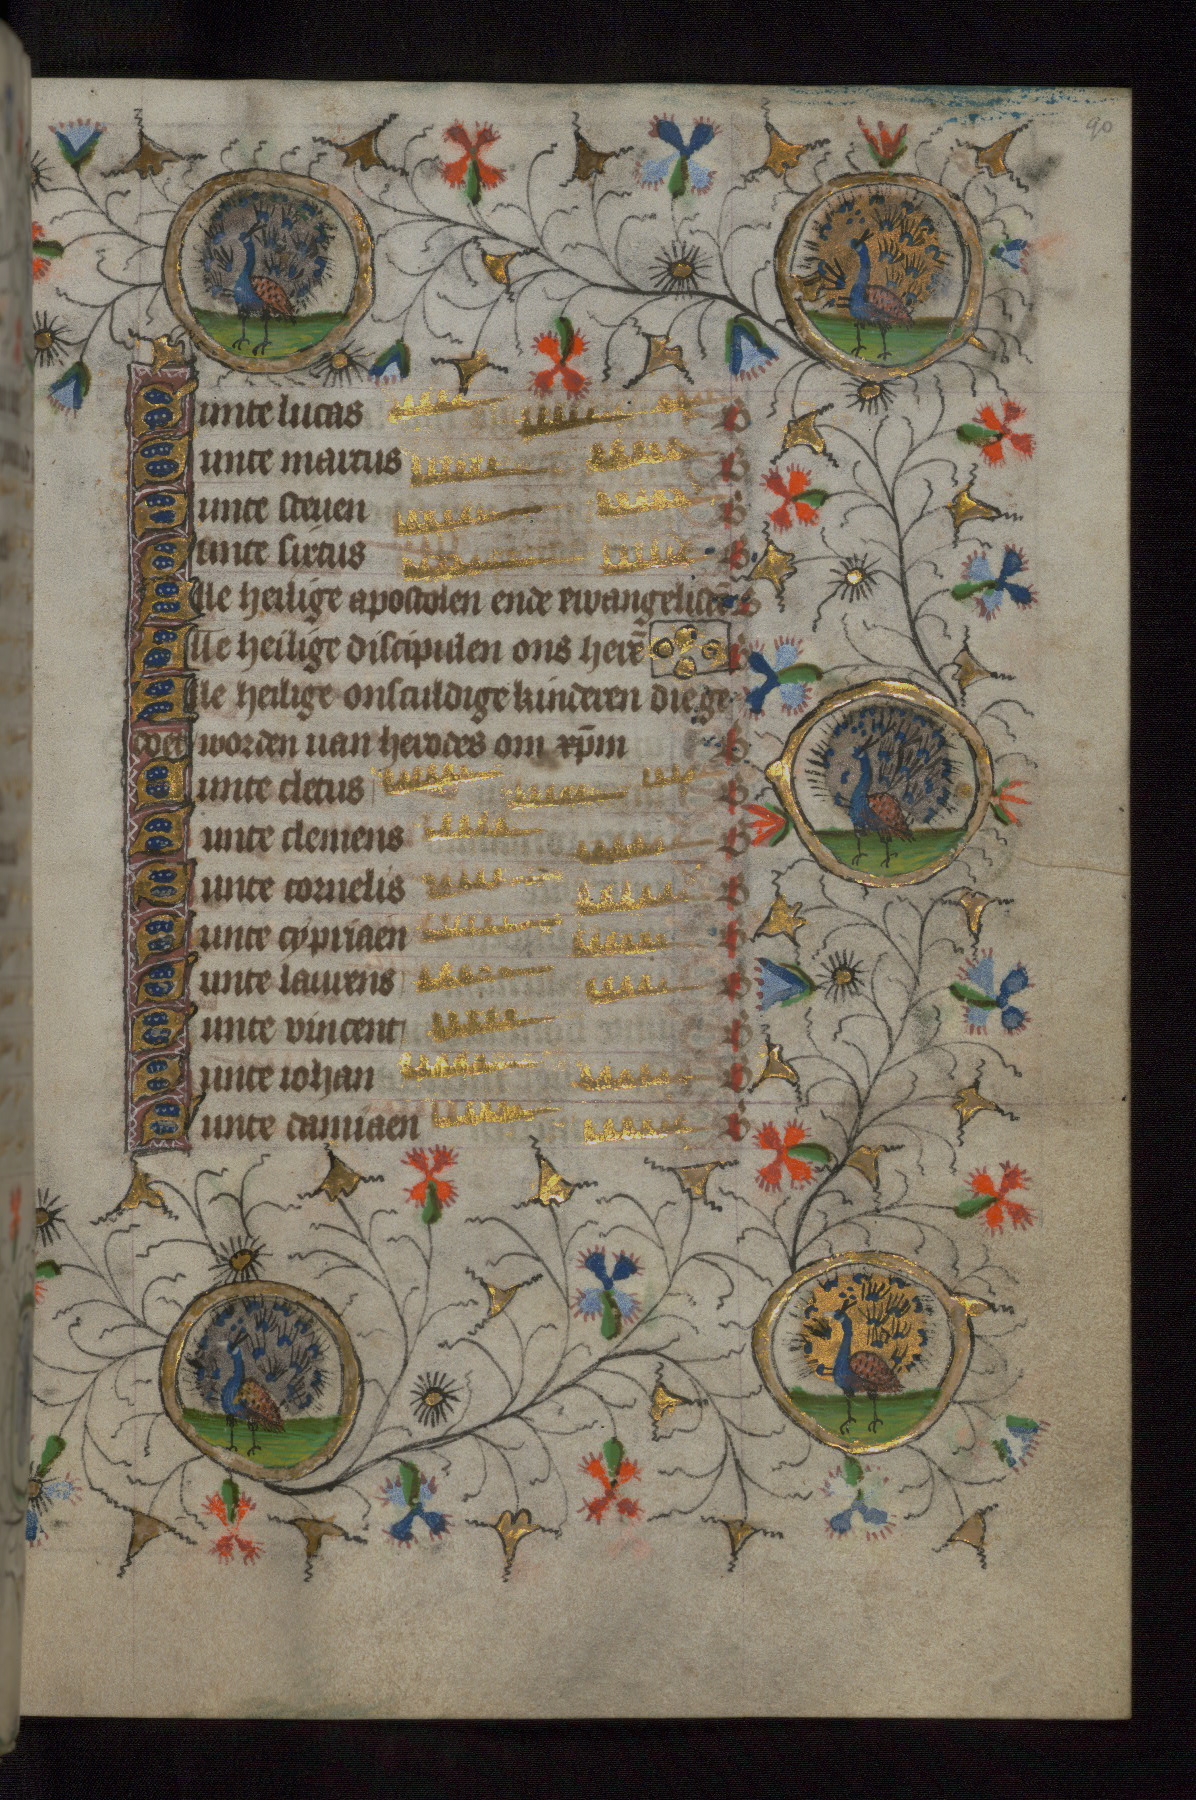 90
Sunte lucas
Sunte marcus
Sunte steuen
Sunte sixtus
Alle heilige apostolen ende ewangelisten
Alle heilige discipulen ons herē
Alle heilige onsculdige kinderen die ge
doet worden uan herodes om xp̄m
Sunte cletus
Sunte clemens
Sunte cornelis
Sunte cypriaen
Sunte laurens
Sunte vincent
Sunte iohan
Sunte damiaen